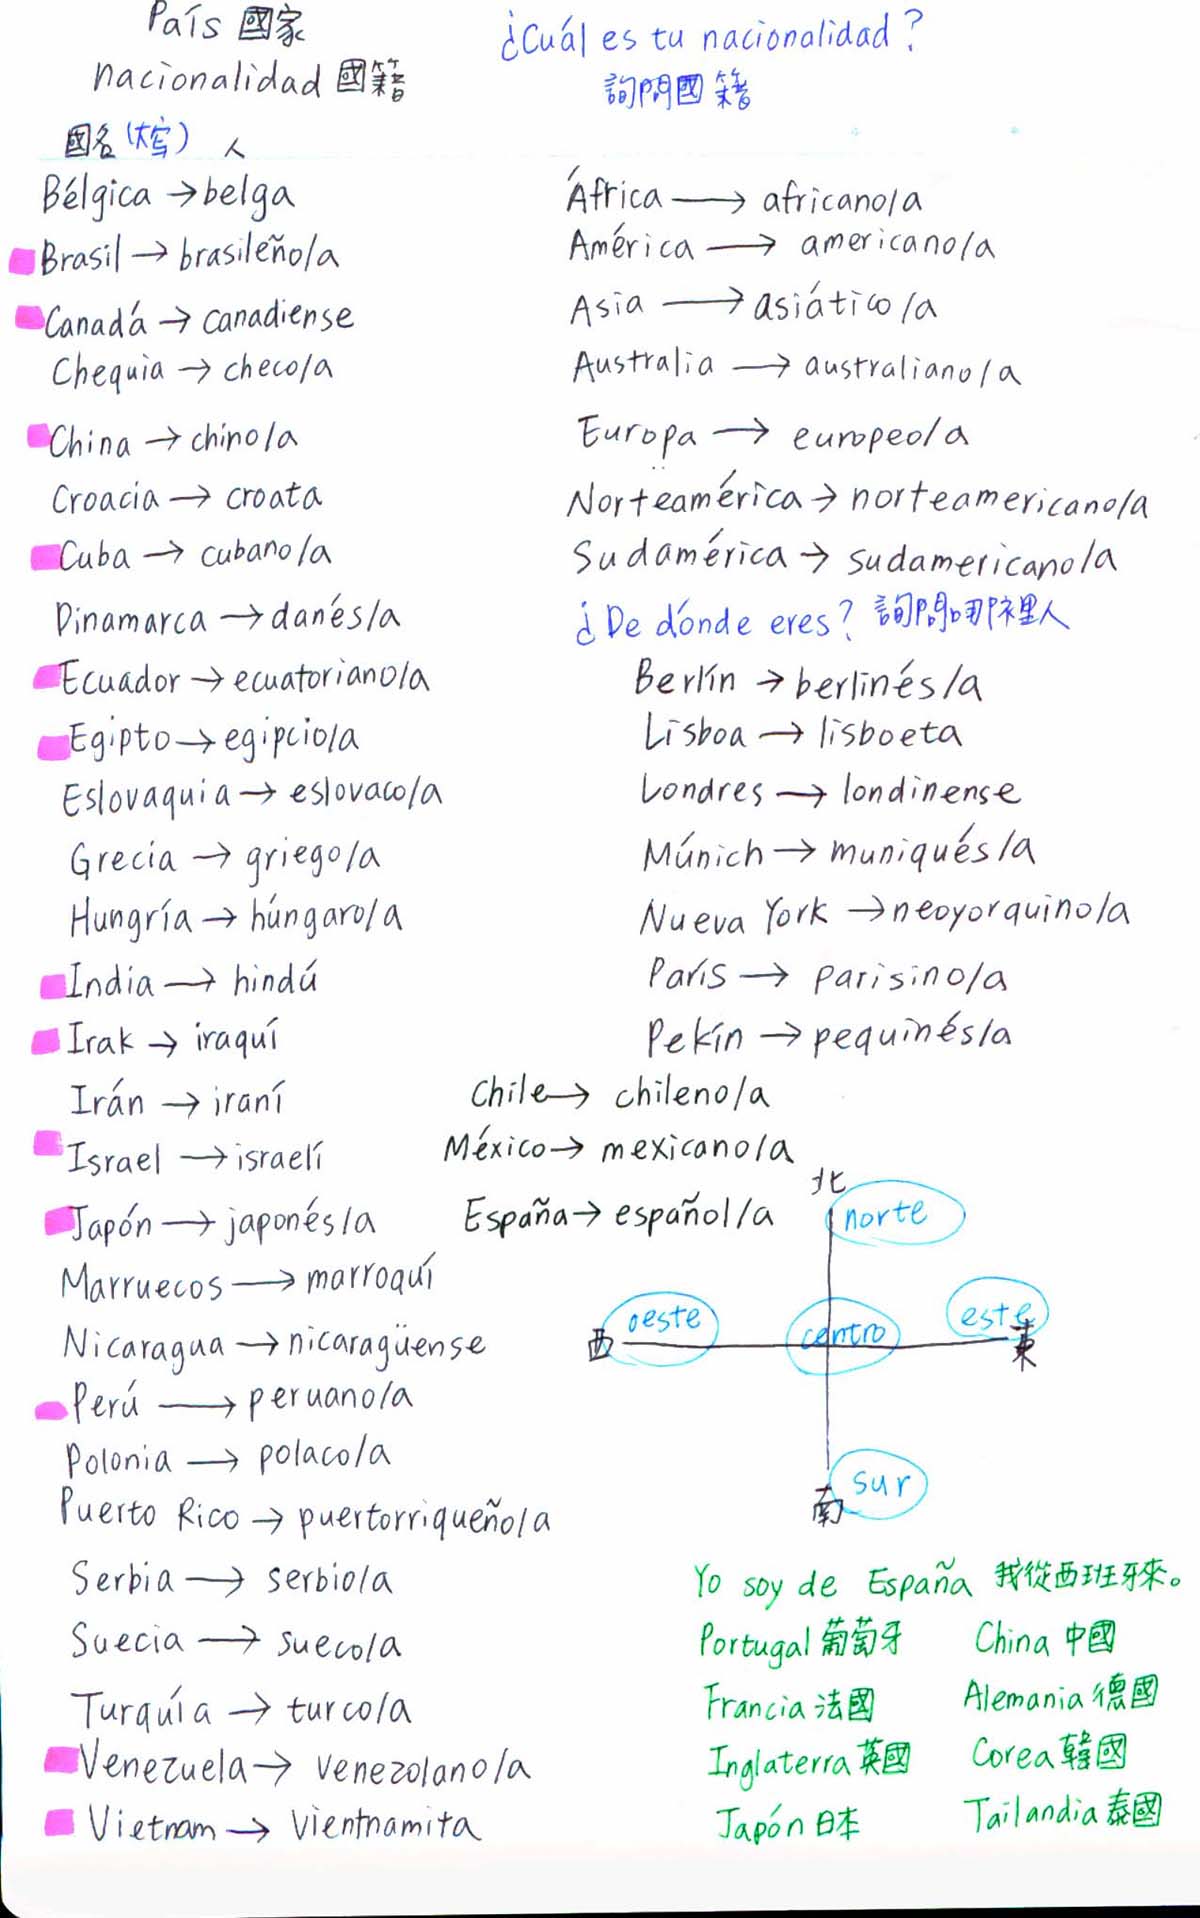 País 國家
nacionalidad 國籍
¿Cuál es tu nacionalidad?
詢問國籍
國名(大写) 人
Bélgica → belga
Brasil → brasileño/a
Canadá → canadiense
Chequia → checo/a
China → chino/a
Croacia → croata
Cuba → cubano/a
Dinamarca → danés/a
Ecuador → ecuatoriano/a
Egipto → egipcio/a
Eslovaquia → eslovaco/a
Grecia → griego/a
Hungría → húngaro/a
India → hindú
Irak → iraquí
Irán → iraní
Israel → israelí
Japón → japonés/a
Marruecos → marroquí
Nicaragua → nicaragüense
Perú → peruano/a
Polonia → polaco/a
Puerto Rico → puertorriqueño/a
Serbia → serbio/a
Suecia → sueco/a
Turquía → turco/a
Venezuela → venezolano/a
Vietnam → vientnamita
África → africano/a
América → americano/a
Asia → asiático/a
Australia → australiano/a
Europa → europeo/a
Norteamérica → norteamericano/a
Sudamérica → sudamericano/a
¿De dónde eres? 詢問哪裡人
Berlín → berlinés/a
Lisboa → lisboeta
Londres → londinense
Múnich → muniqués/a
Nueva York → neoyorquino/a
París → parisino/a
Pekín → pequinés/a
Chile → chileno/a
México → mexicano/a
España → español/a
北
norte
西 oeste centro este 東
sur
南
Yo soy de España 我從西班牙來。
Portugal 葡萄牙 China 中國
Francia 法國 Alemania 德國
Inglaterra 英國 Corea 韓國
Japón 日本 Tailandia 泰國